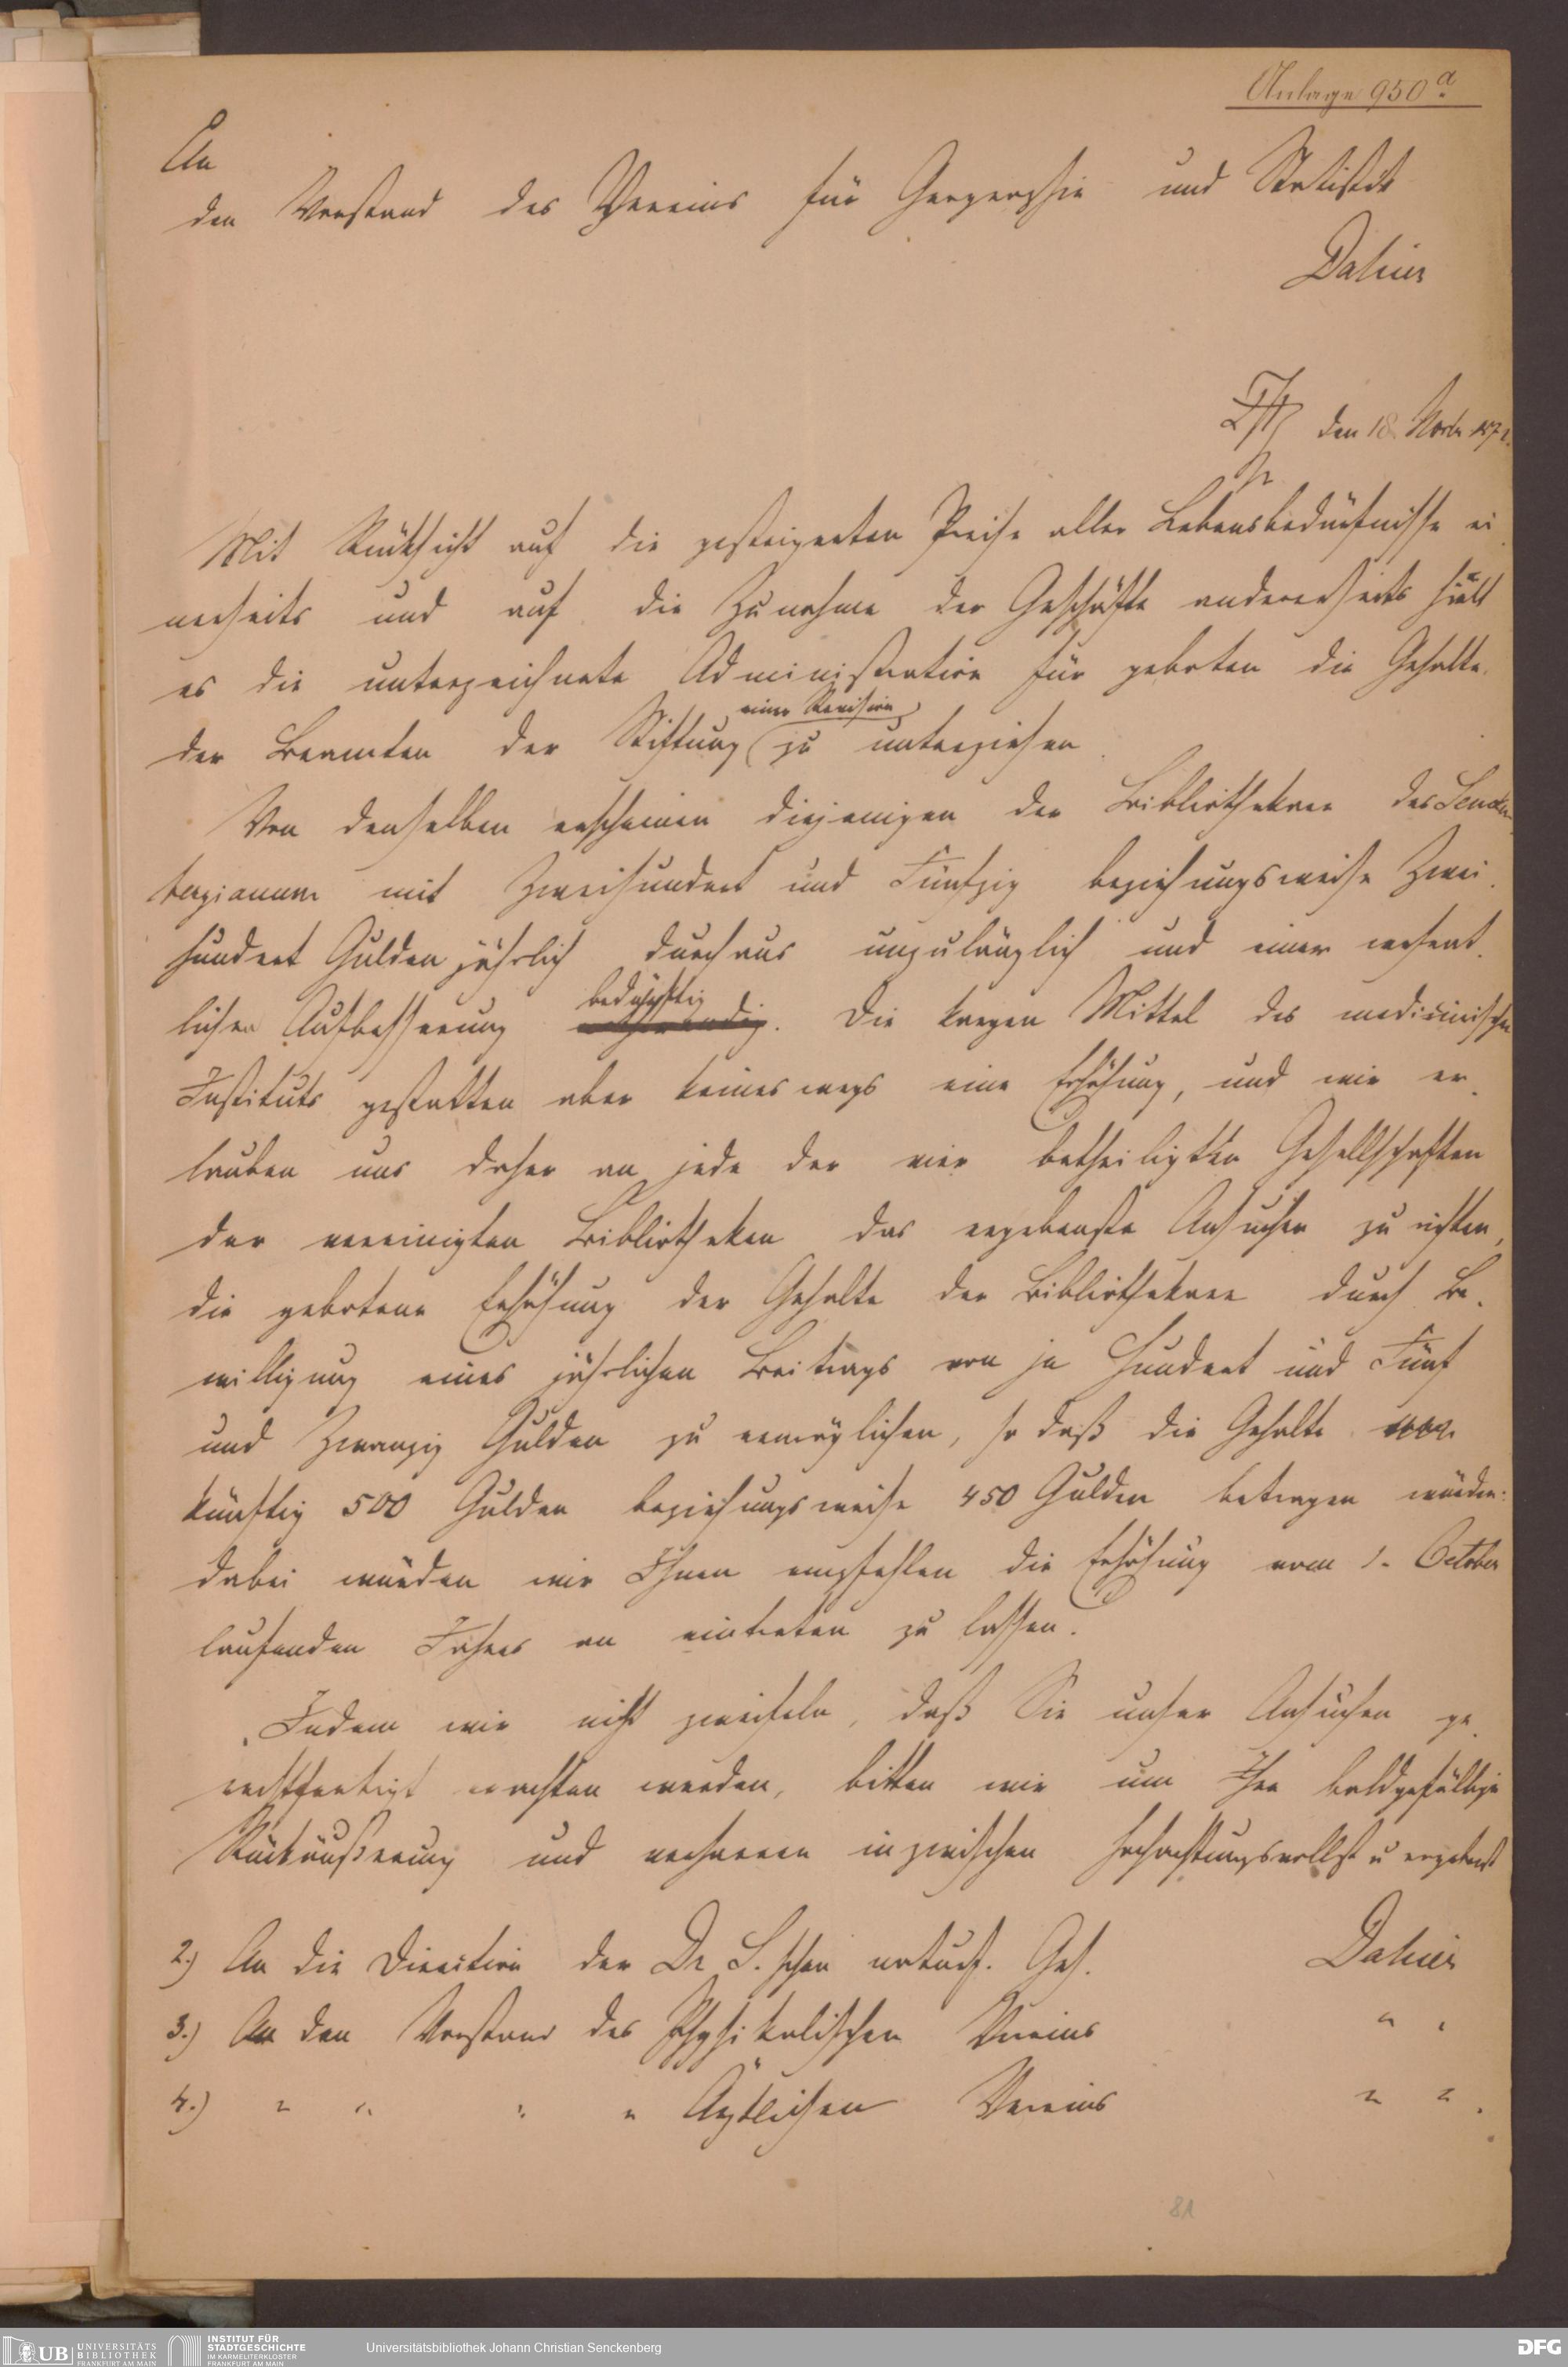 Anlage 950a.
An
den Vorstand des Vereins für Geographie und Statistik
Dahier
den 18. Novbr 187
Mit Rücksicht auf die gesteigerten Preise aller Lebensbedürfnisse ei-
nerseits und auf die Zunahme der Geschäfte andererseits hält
es die unterzeichnete Administration für geboten die Gehalte
der Beamten der Stiftung einer Revision zu unterziehen.
Von denselben erscheinen diejenigen der Bibliothekare des Sencken-
bergianum mit Zweihundert und Fünfzig beziehungsweise Zwei-
hundert Gulden jährlich durchaus unzulänglich und einer wesent-
lichen Aufbesserung bedürftig. Die kargen Mittel des medicinischen
Instituts gestatten aber keineswegs eine Erhöhung, und wir er-
lauben uns daher an jede der vier betheiligten Gesellschaften
der vereinigten Bibliotheken das ergebenste Ansuchen zu richten,
die gebotene Erhöhung der Gehalte der Bibliothekare durch Be-
willigung eines jährlichen Beitrags von je Hundert und Fünf
und Zwanzig Gulden zu ermöglichen, so daß die Gehalte
künftig 500 Gulden beziehungsweise 450 Gulden betragen würden.
dabei würden wir Ihnen empfehlen die Erhöhung vom 1. October
laufenden Jahres an eintreten zu lassen.
Indem wir nicht zweifeln, daß Sie unser Ansuchen ge-
rechtfertigt erachten werden, bitten wir um Ihre baldgefällige
Rückäußerung und verharren inzwischen hochachtungsvollst u ergebenst
2.) An die Direction der Dr S.schen naturf. Ges. Dahier
3.) An den Vorstand des Physikalischen Vereins " "
4.) " " " " Ärztlichen Vereins " "
81
UB UNIVERSITÄTS BIBLIOTHEK FRANKFURT AM MAIN
INSTITUT FÜR STADTGESCHICHTE IM KARMELITERKLOSTER FRANKFURT AM MAIN
Universitätsbibliothek Johann Christian Senckenberg
DFG